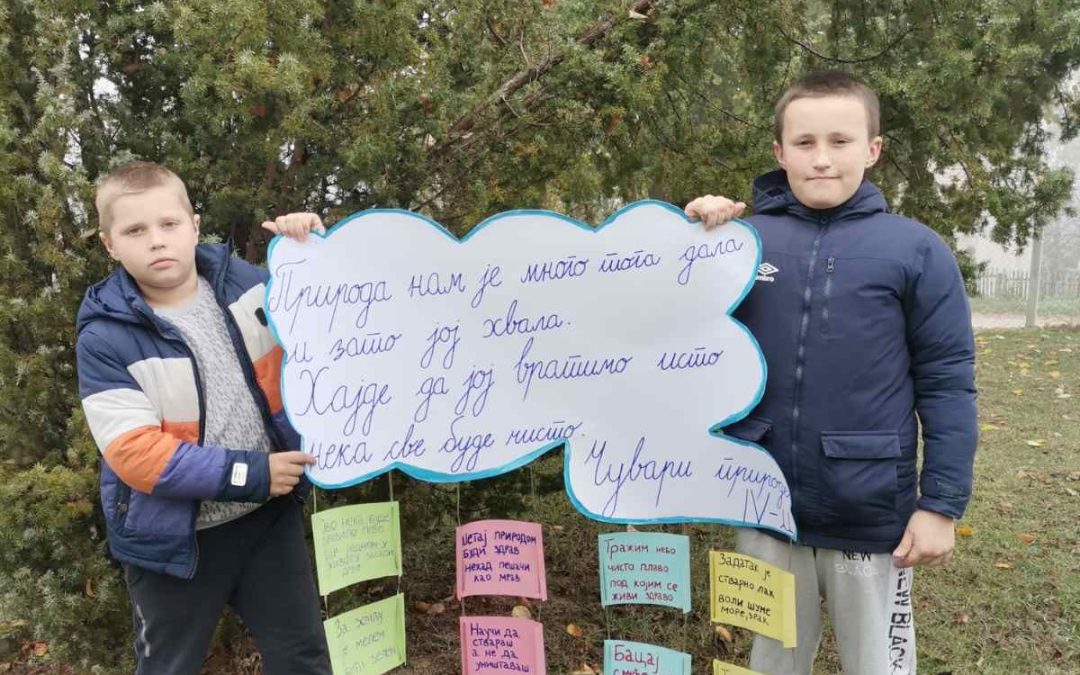 Природа нам је много тога дала
и зато јој хвала.
Хајде да јој вратимо исто
нека све буде чисто.
Чувари природе
нека буде
засади
дрво
За земљу
Шетај природом
буди здрав
некад пешачи
као мрав
Научи да
ствараш
а не да
уништаваш
Тражим небо
чисто плаво
под којим се
живи здраво
Бацај
Задатак је
стварно лак
воли шуме
море, зрак
umbro
NEW
NEW BLACK